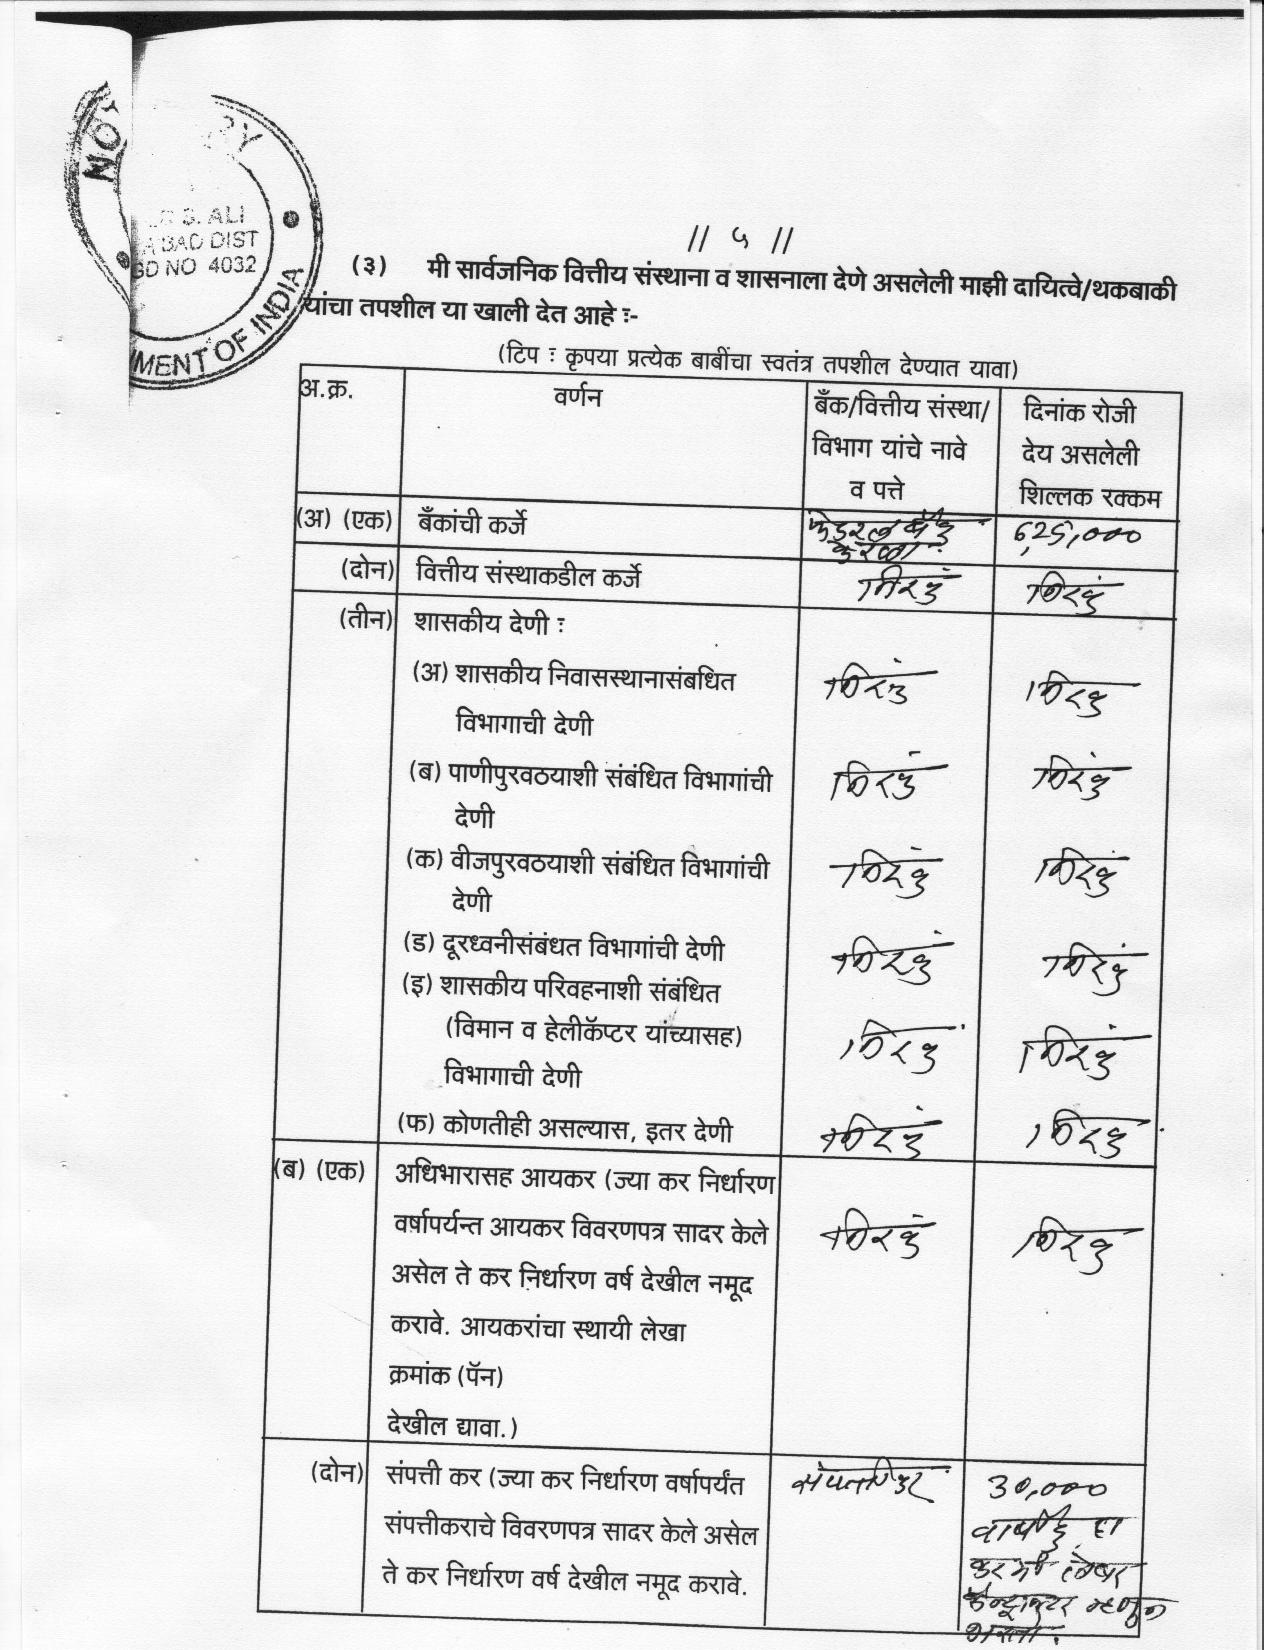 NOTARY
S. ALI
ABAD DIST
GD NO 4032
MENT OF INDIA
// ५ //
(३) मी सार्वजनिक वित्तीय संस्थाना व शासनाला देणे असलेली माझी दायित्वे/थकबाकी
यांचा तपशील या खाली देत आहे :-
(टिप : कृपया प्रत्येक बाबींचा स्वतंत्र तपशील देण्यात यावा)
अ.क्र. वर्णन बँक/वित्तीय संस्था/ दिनांक रोजी
विभाग यांचे नावे देय असलेली
व पत्ते शिल्लक रक्कम
(अ) (एक) बँकांची कर्जे फेडरल बँक 625,000
केरळा
(दोन) वित्तीय संस्थाकडील कर्जे निरंक निरंक
(तीन) शासकीय देणी :
(अ) शासकीय निवासस्थानासंबधित निरंक निरंक
विभागाची देणी
(ब) पाणीपुरवठयाशी संबंधित विभागांची निरंक निरंक
देणी
(क) वीजपुरवठयाशी संबंधित विभागांची निरंक निरंक
देणी
(ड) दूरध्वनीसंबंधत विभागांची देणी निरंक निरंक
(इ) शासकीय परिवहनाशी संबंधित
(विमान व हेलीकॅप्टर यांच्यासह) निरंक निरंक
विभागाची देणी
(फ) कोणतीही असल्यास, इतर देणी निरंक निरंक
(ब) (एक) अधिभारासह आयकर (ज्या कर निर्धारण
वर्षापर्यन्त आयकर विवरणपत्र सादर केले निरंक निरंक
असेल ते कर निर्धारण वर्ष देखील नमूद
करावे. आयकरांचा स्थायी लेखा
क्रमांक (पॅन)
देखील द्यावा.)
(दोन) संपत्ती कर (ज्या कर निर्धारण वर्षापर्यंत 30,000
संपत्तीकराचे विवरणपत्र सादर केले असेल
ते कर निर्धारण वर्ष देखील नमूद करावे.